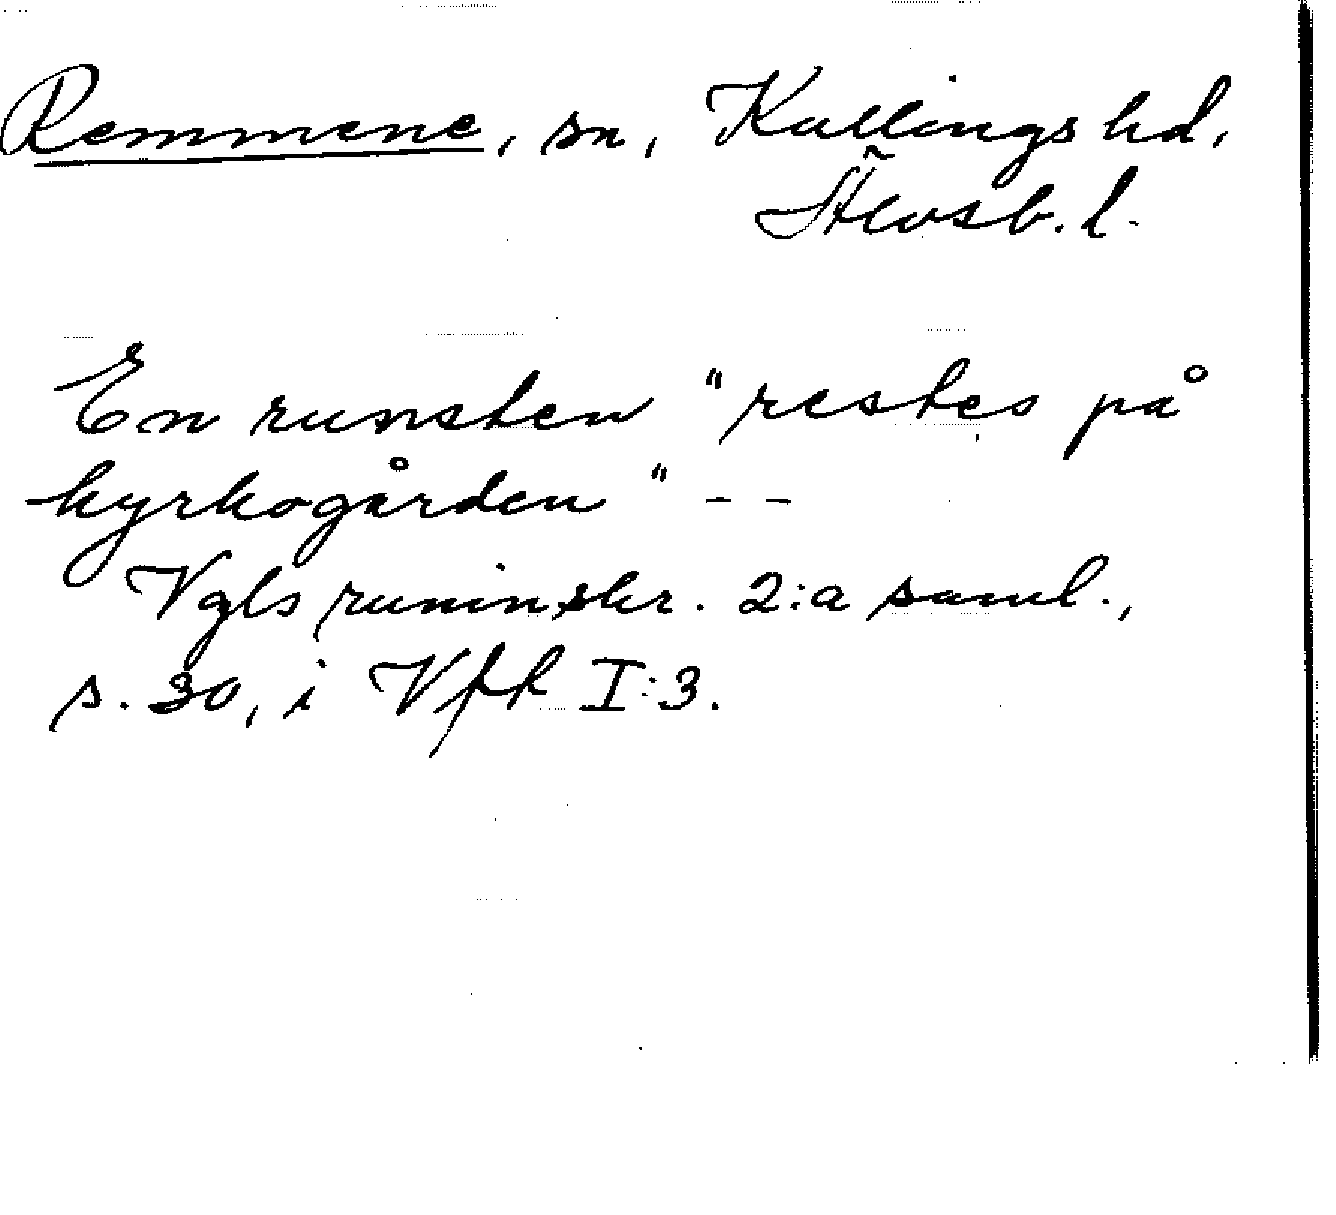 Remmene, sn, Kullings hd,
Älvsb. l.
En runsten "restes på
kyrkogården" - -
Vgls runinskr. 2:a saml.,
s. 30, i Vfk I:3.